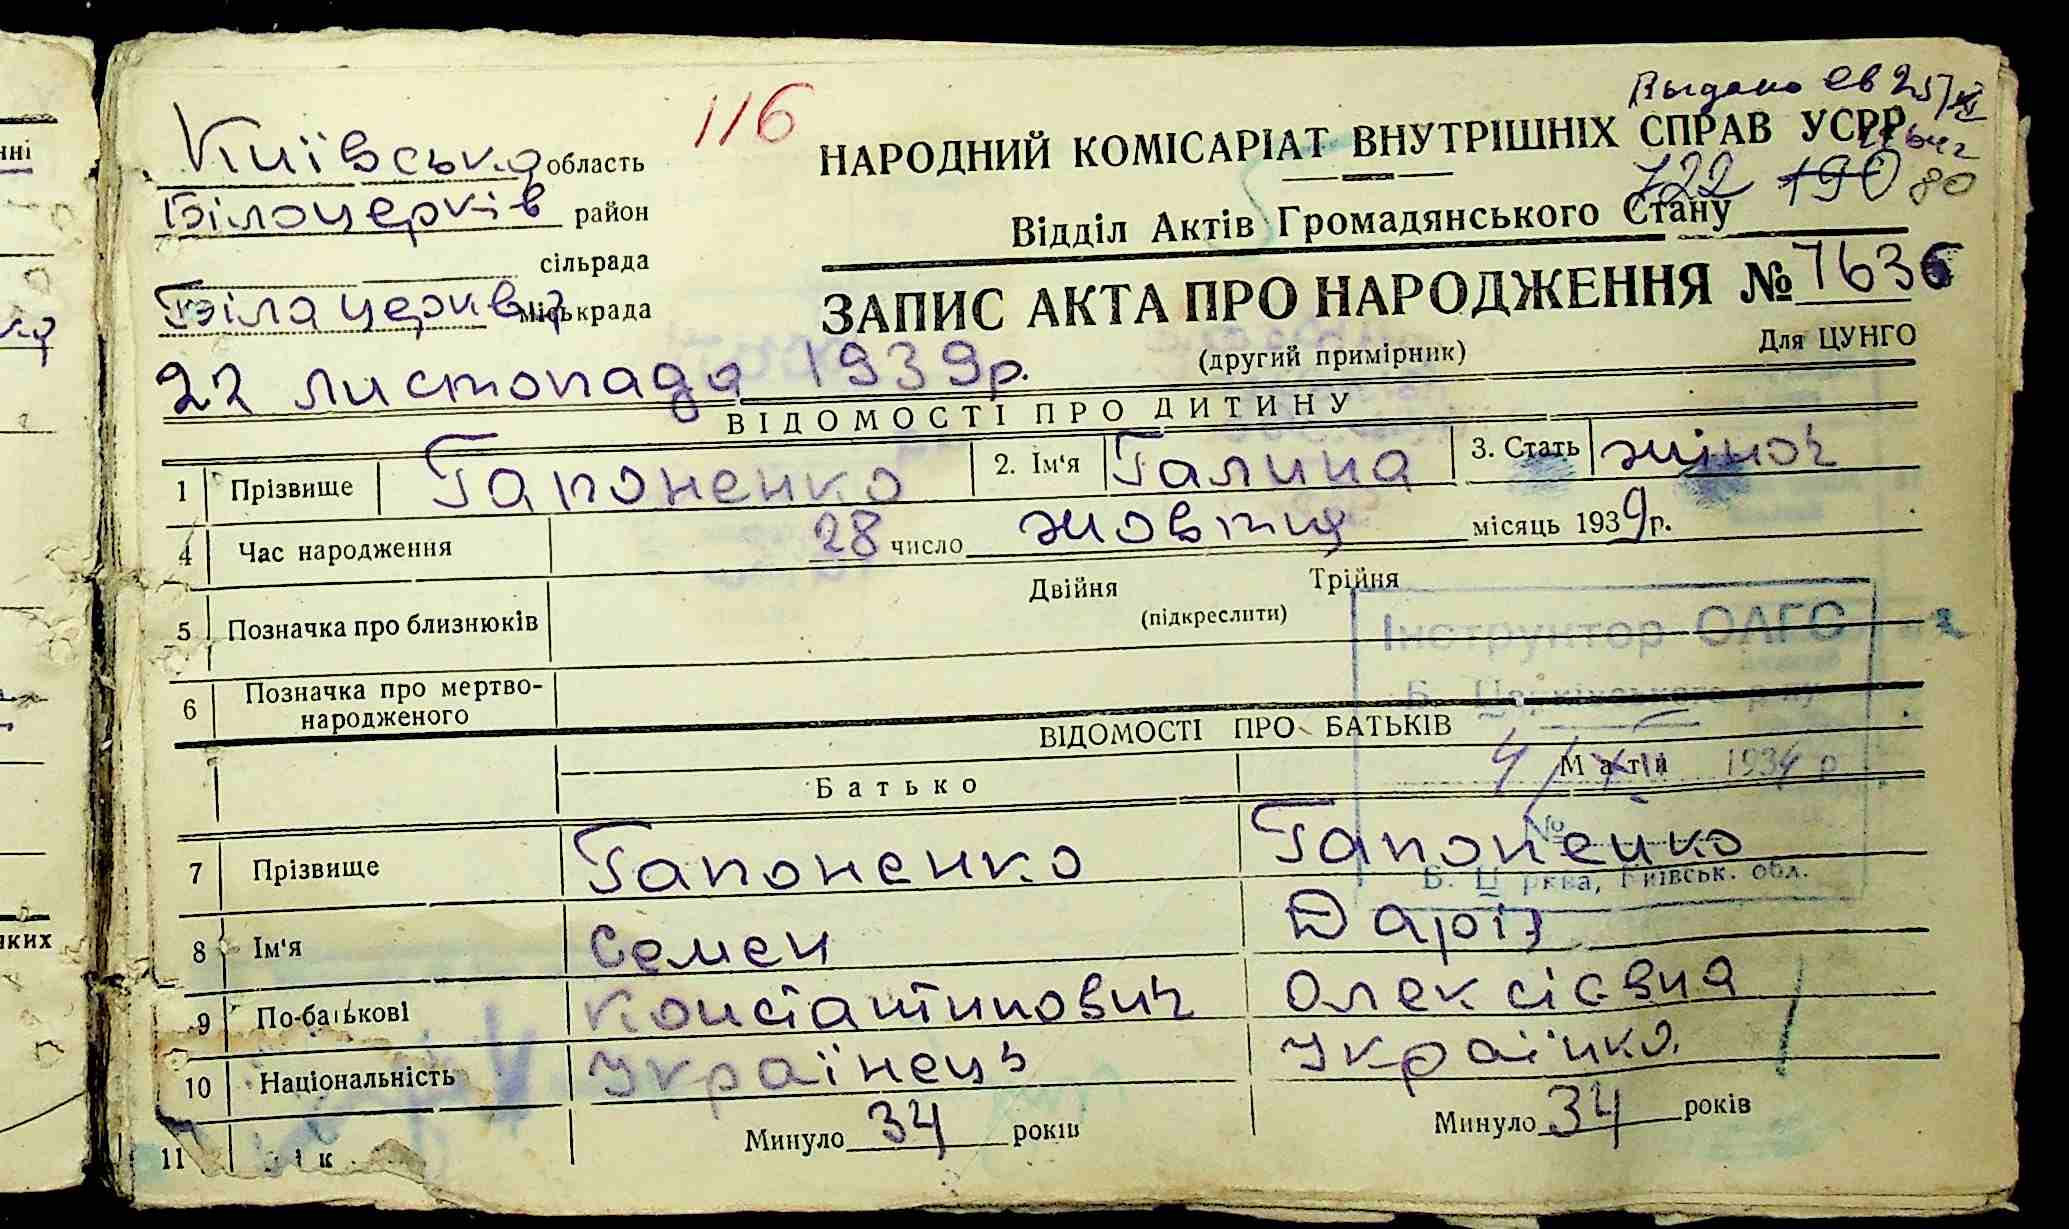 116
Выдано св 25/XI
НАРОДНИЙ КОМІСАРІАТ ВНУТРІШНІХ СПРАВ УСРР
Київська область
722 190 80
Білоцерків район
Відділ Актів Громадянського Стану
сільрада
Біла церква міськрада
ЗАПИС АКТА ПРО НАРОДЖЕННЯ № 1636
(другий примірник)
Для ЦУНГО
22 листопада 1939р.
ВІДОМОСТІ ПРО ДИТИНУ
1 Прізвище Гапоненко 2. Ім'я Галина 3. Стать жіноч
4 Час народження 28 число жовтня місяць 1939р.
Двійня Трійня
5 Позначка про близнюків (підкреслити)
Інструктор ОАГС
6 Позначка про мертво-
народженого
Б. Церківського р-ну
ВІДОМОСТІ ПРО БАТЬКІВ
Батько Мати
4/XII 1934 р
7 Прізвище Гапоненко Гапоненко
№
Б. Церква, Київськ. обл.
8 Ім'я Семен Дарія
9 По-батькові Константинович Олексієвна
10 Національність Українець Українка
11 Вік Минуло 34 років Минуло 34 років